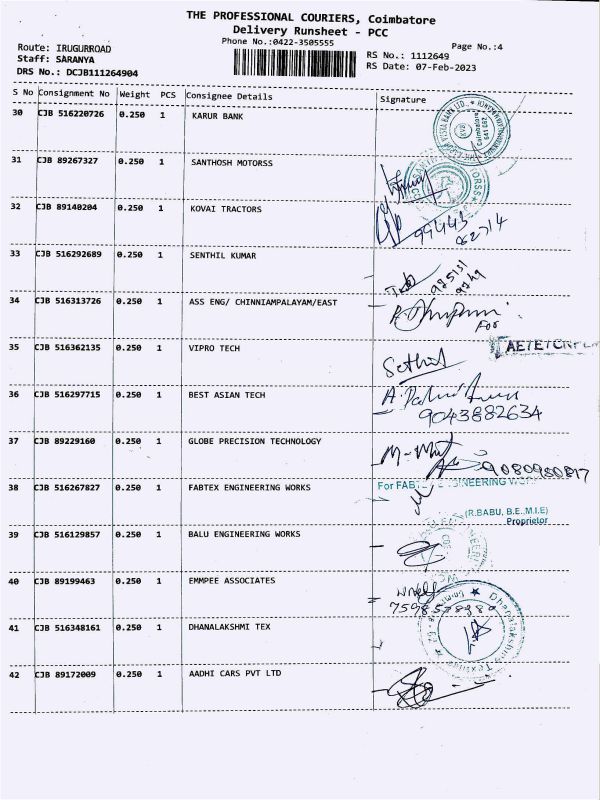 THE PROFESSIONAL COURIERS, Coimbatore
Delivery Runsheet - PCC
Phone No.:0422-3505555
Page No.:4
Route: IRUGURROAD
RS No.: 1112649
Staff: SARANYA
RS Date: 07-Feb-2023
DRS No.: DCJB111264904
S No Consignment No Weight PCS Consignee Details Signature
30 CJB 516220726 0.250 1 KARUR BANK
31 CJB 89267327 0.250 1 SANTHOSH MOTORSS
32 CJB 89140204 0.250 1 KOVAI TRACTORS
94443
62714
33 CJB 516292689 0.250 1 SENTHIL KUMAR
34 CJB 516313726 0.250 1 ASS ENG/ CHINNIAMPALAYAM/EAST
For
35 CJB 516362135 0.250 1 VIPRO TECH
36 CJB 516297715 0.250 1 BEST ASIAN TECH
9043882634
37 CJB 89229160 0.250 1 GLOBE PRECISION TECHNOLOGY
9080980817
38 CJB 516267827 0.250 1 FABTEX ENGINEERING WORKS
(R.BABU, B.E.,M.I.E)
Proprietor
39 CJB 516129857 0.250 1 BALU ENGINEERING WORKS
40 CJB 89199463 0.250 1 EMMPEE ASSOCIATES
41 CJB 516348161 0.250 1 DHANALAKSHMI TEX
42 CJB 89172009 0.250 1 AADHI CARS PVT LTD